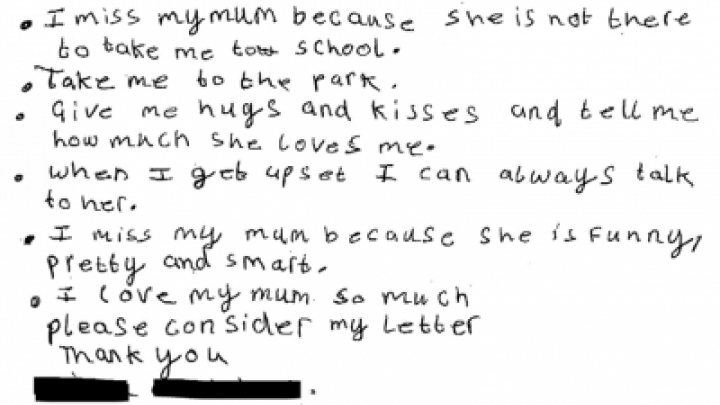 • I miss my mum because she is not there
to take me to school.
• Take me to the park.
• Give me hugs and kisses and tell me
how much she loves me.
• when I get upset I can always talk
to her.
• I miss my mum because she is funny,
pretty and smart.
• I love my mum so much
please consider my Letter
Thank you